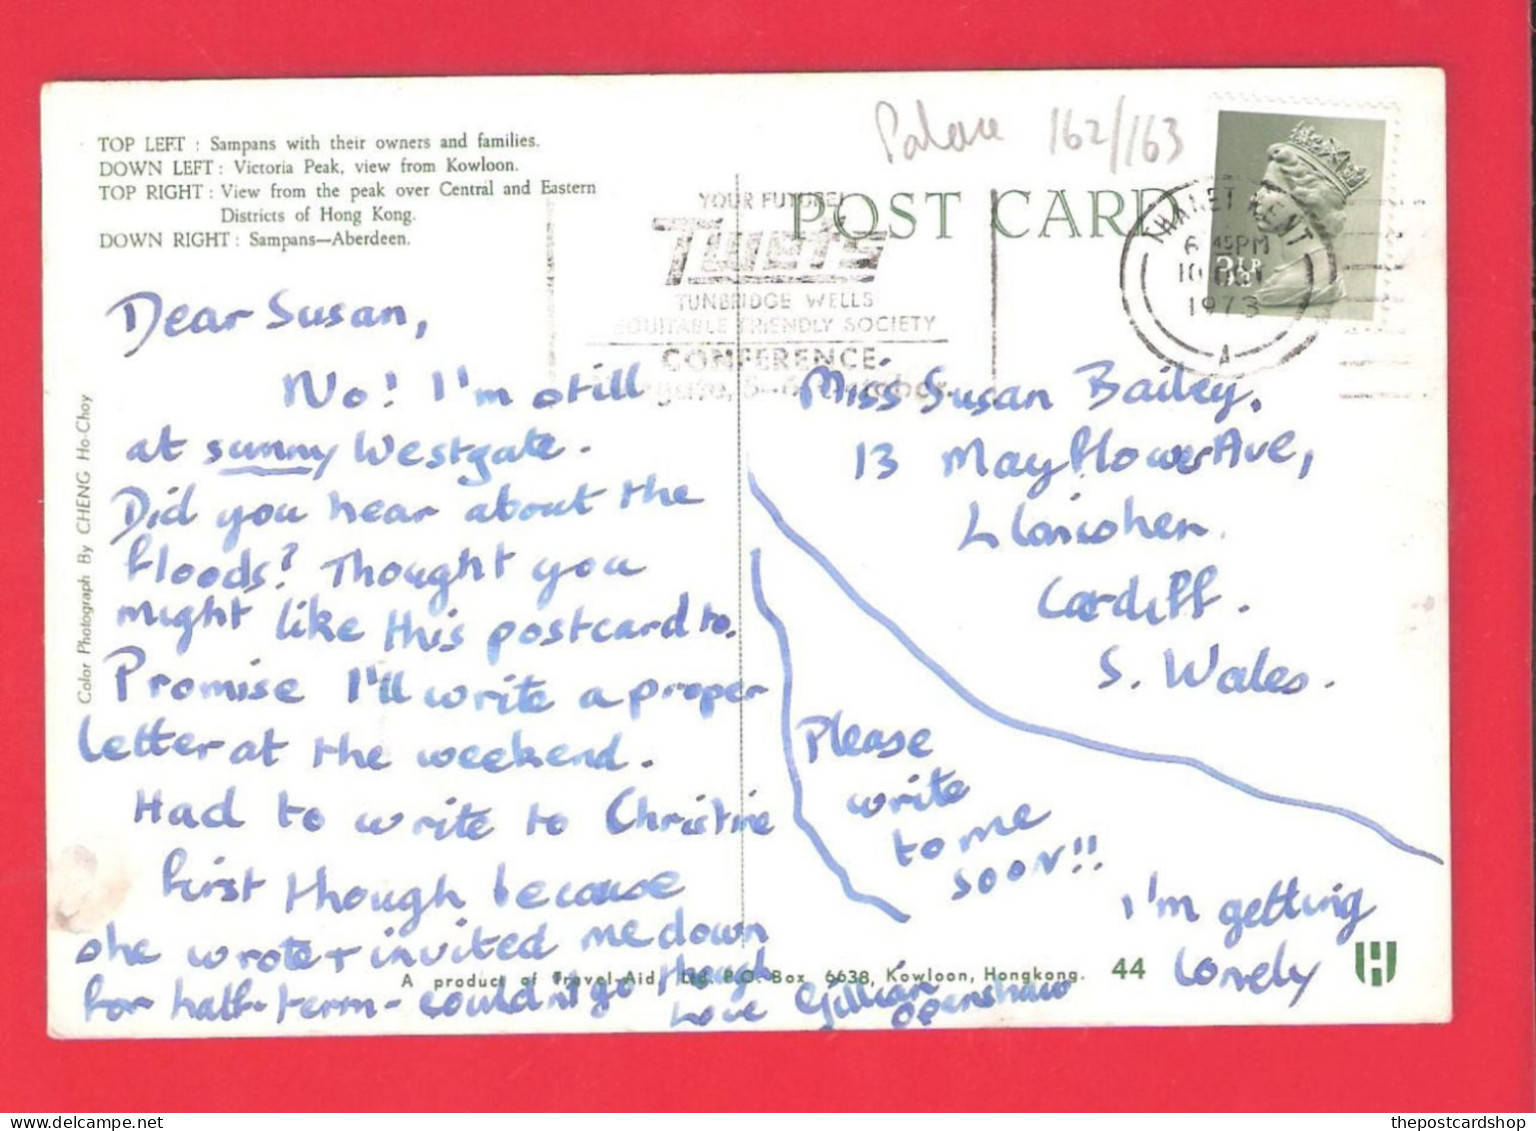 TOP LEFT : Sampans with their owners and families.
DOWN LEFT : Victoria Peak, view from Kowloon.
TOP RIGHT : View from the peak over Central and Eastern
Districts of Hong Kong.
DOWN RIGHT : Sampans—Aberdeen.
Color Photograph By CHENG Ho-Choy
162/163
POST CARD
YOUR FUTURE!
TUNBRIDGE WELLS
EQUITABLE FRIENDLY SOCIETY
CONFERENCE
THANET KENT
6 45PM
10
1973
A
3½P
Dear Susan,
No! I'm still
at sunny Westgate.
Did you hear about the
floods? Thought you
might like this postcard to.
Promise I'll write a proper
letter at the weekend.
Had to write to Christine
first though because
she wrote + invited me down
for half-term - couldn't go though
Love Gillian
Openshaw
Miss Susan Bailey,
13 Mayflower Ave,
Cardiff.
S. Wales.
Please
write
to me
soon!!
I'm getting
lonely
A product of Travel-Aid, Ltd. P.O. Box 6638, Kowloon, Hongkong. 44
thepostcardshop